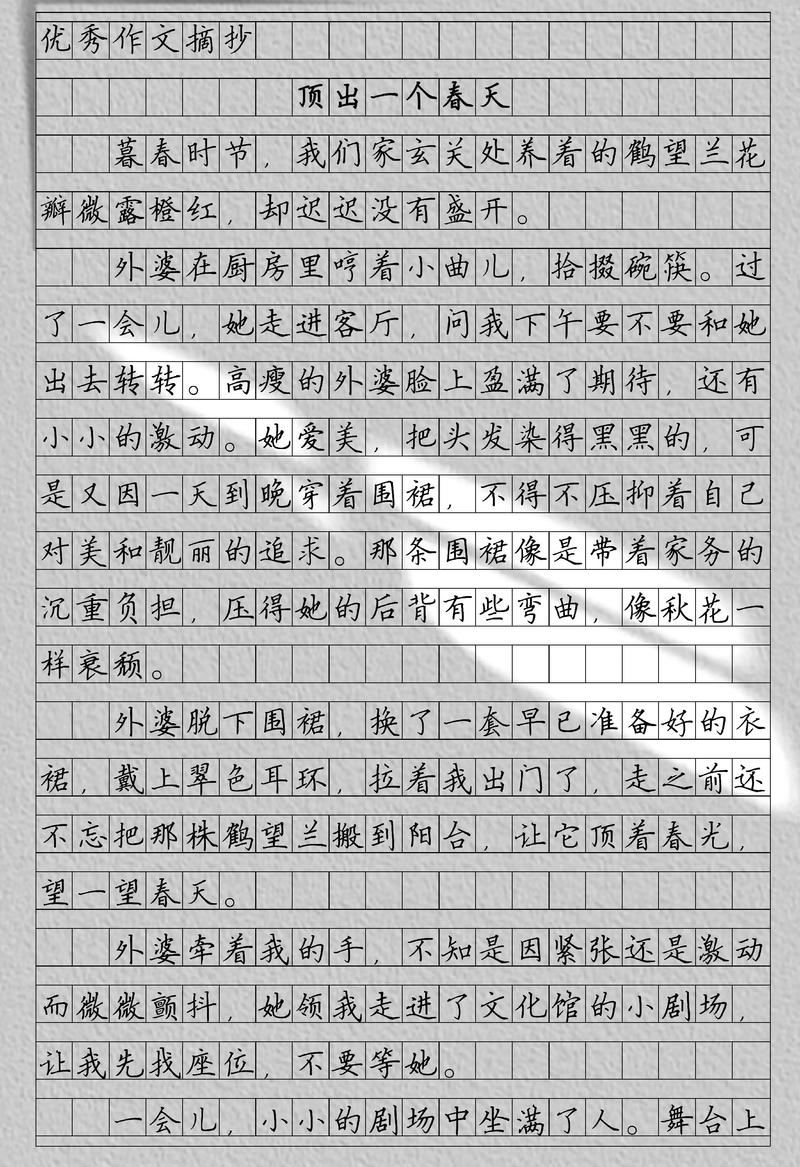 优秀作文摘抄
顶出一个春天
暮春时节，我们家玄关处养着的鹤望兰花
瓣微露橙红，却迟迟没有盛开。
外婆在厨房里哼着小曲儿，拾掇碗筷。过
了一会儿，她走进客厅，问我下午要不要和她
出去转转。高瘦的外婆脸上盈满了期待，还有
小小的激动。她爱美，把头发染得黑黑的，可
是又因一天到晚穿着围裙，不得不压抑着自己
对美和靓丽的追求。那条围裙像是带着家务的
沉重负担，压得她的后背有些弯曲，像秋花一
样衰颓。
外婆脱下围裙，换了一套早已准备好的衣
裙，戴上翠色耳环，拉着我出门了，走之前还
不忘把那株鹤望兰搬到阳台，让它顶着春光，
望一望春天。
外婆牵着我的手，不知是因紧张还是激动
而微微颤抖，她领我走进了文化馆的小剧场，
让我先找座位，不要等她。
一会儿，小小的剧场中坐满了人。舞台上